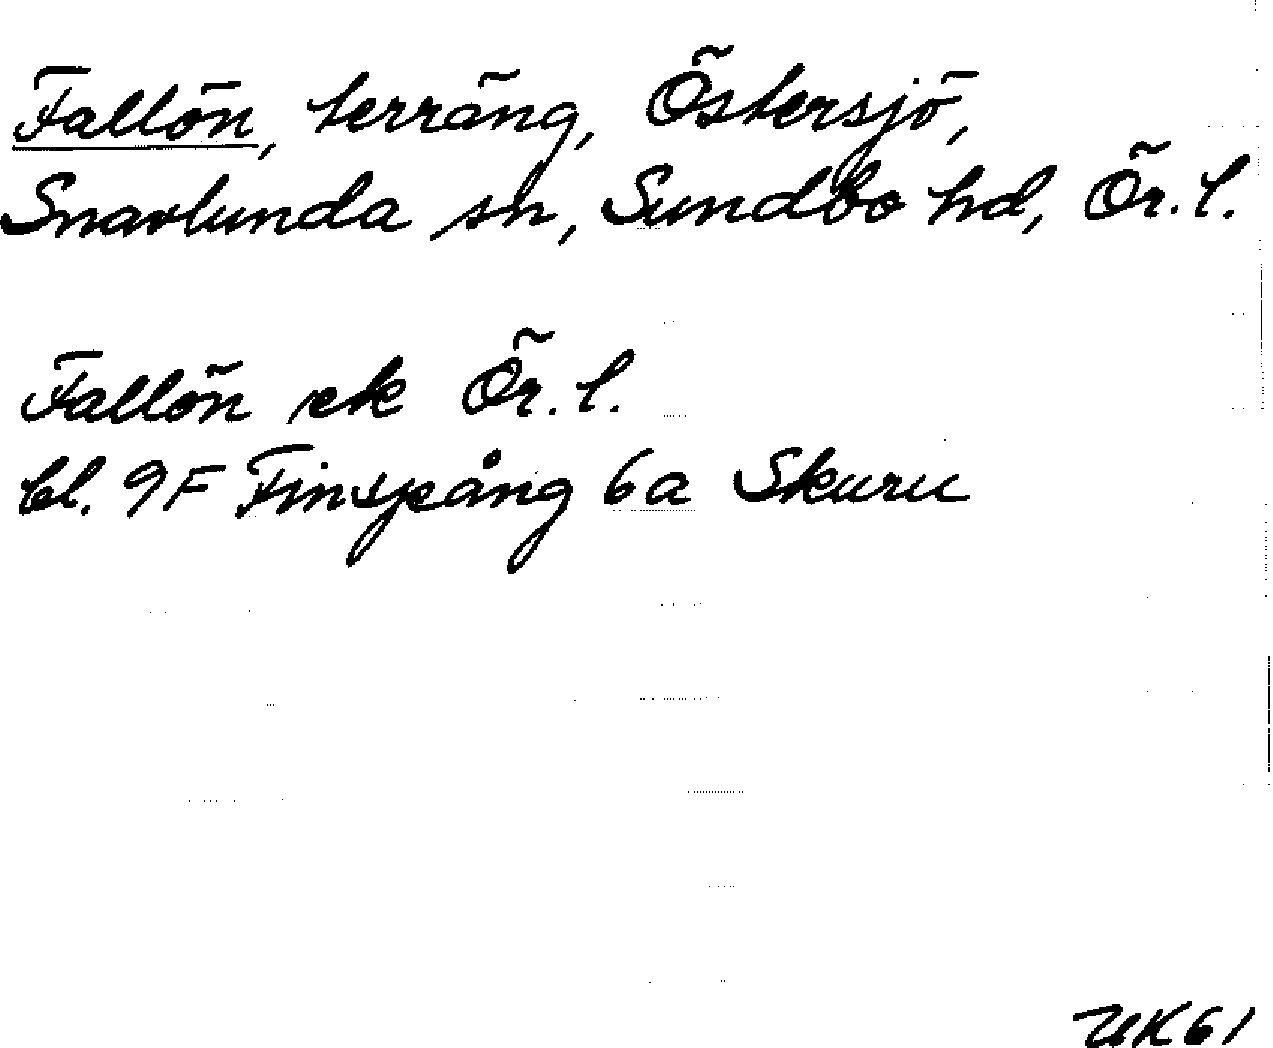 Fallön, terräng, Östersjö,
Snavlunda sn, Sundbo hd, Ör. l.
Fallön ek Ör. l.
bl. 9F Finspång 6a Skuru
UK61